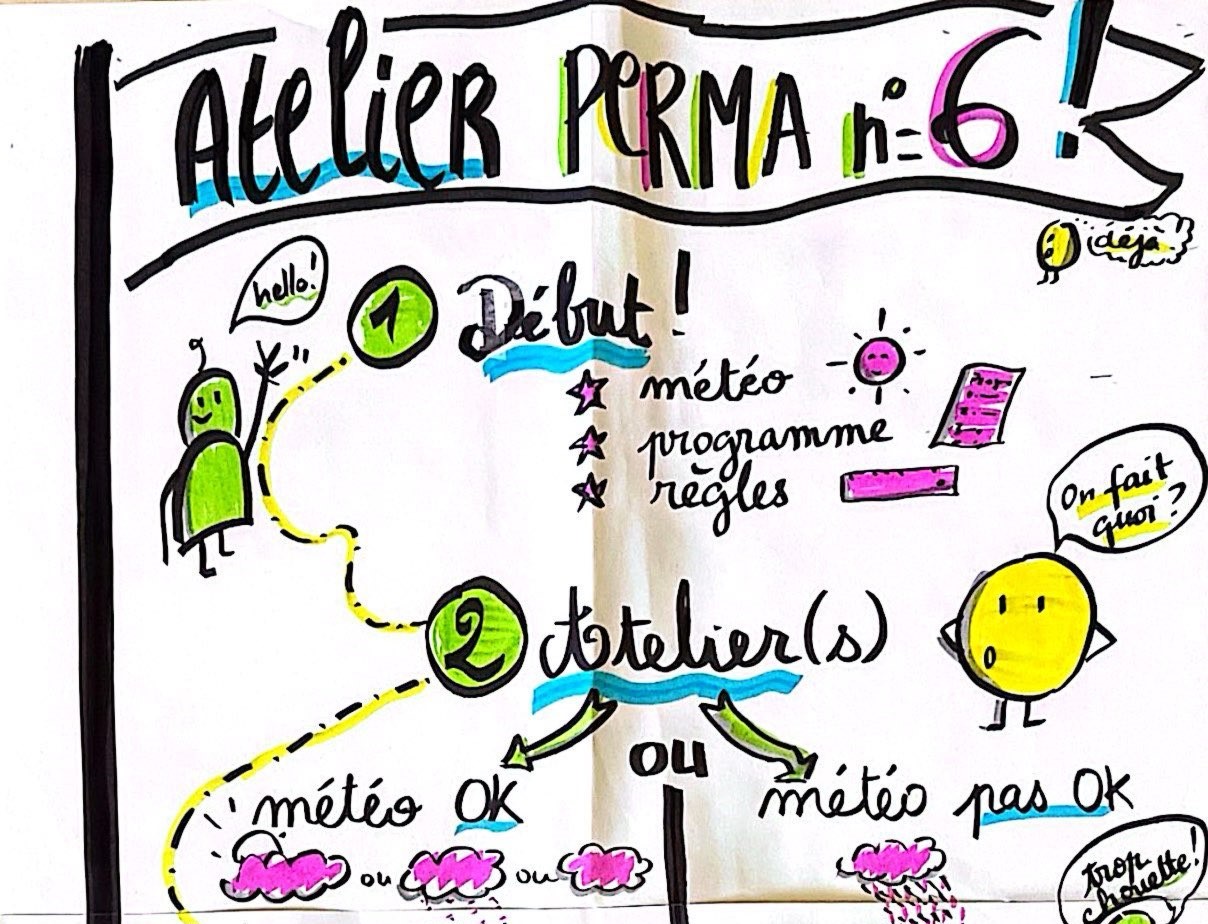 Atelier PERMA n°6!
déjà
hello!
1 Début!
météo
programme
règles
On fait
quoi?
2 Atelier(s)
ou
météo OK
météo pas OK
ou ou
trop
chouette!